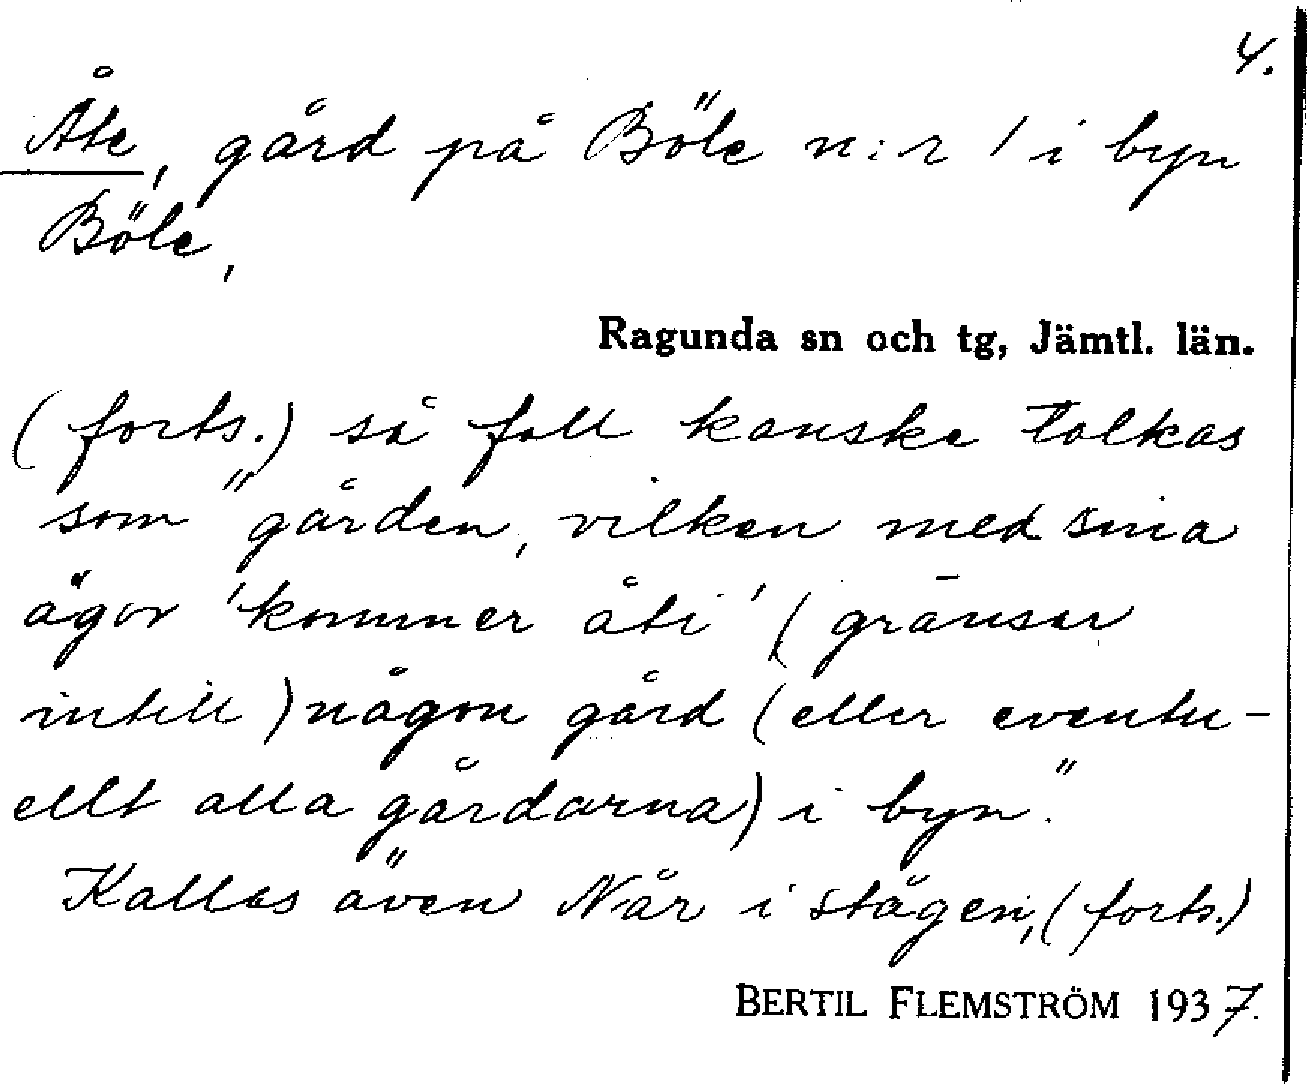 4.
Åte, gård på Böle n:r 1 i byn
Böle,
Ragunda sn och tg, Jämtl. län.
(forts.) så fall kanske tolkas
som "gården, vilken med sina
ägor 'kommer åti' (gränsar
intill) någon gård (eller eventu-
ellt alla gårdarna) i byn."
Kallas även Når i stägen, (forts.)
BERTIL FLEMSTRÖM 1937.